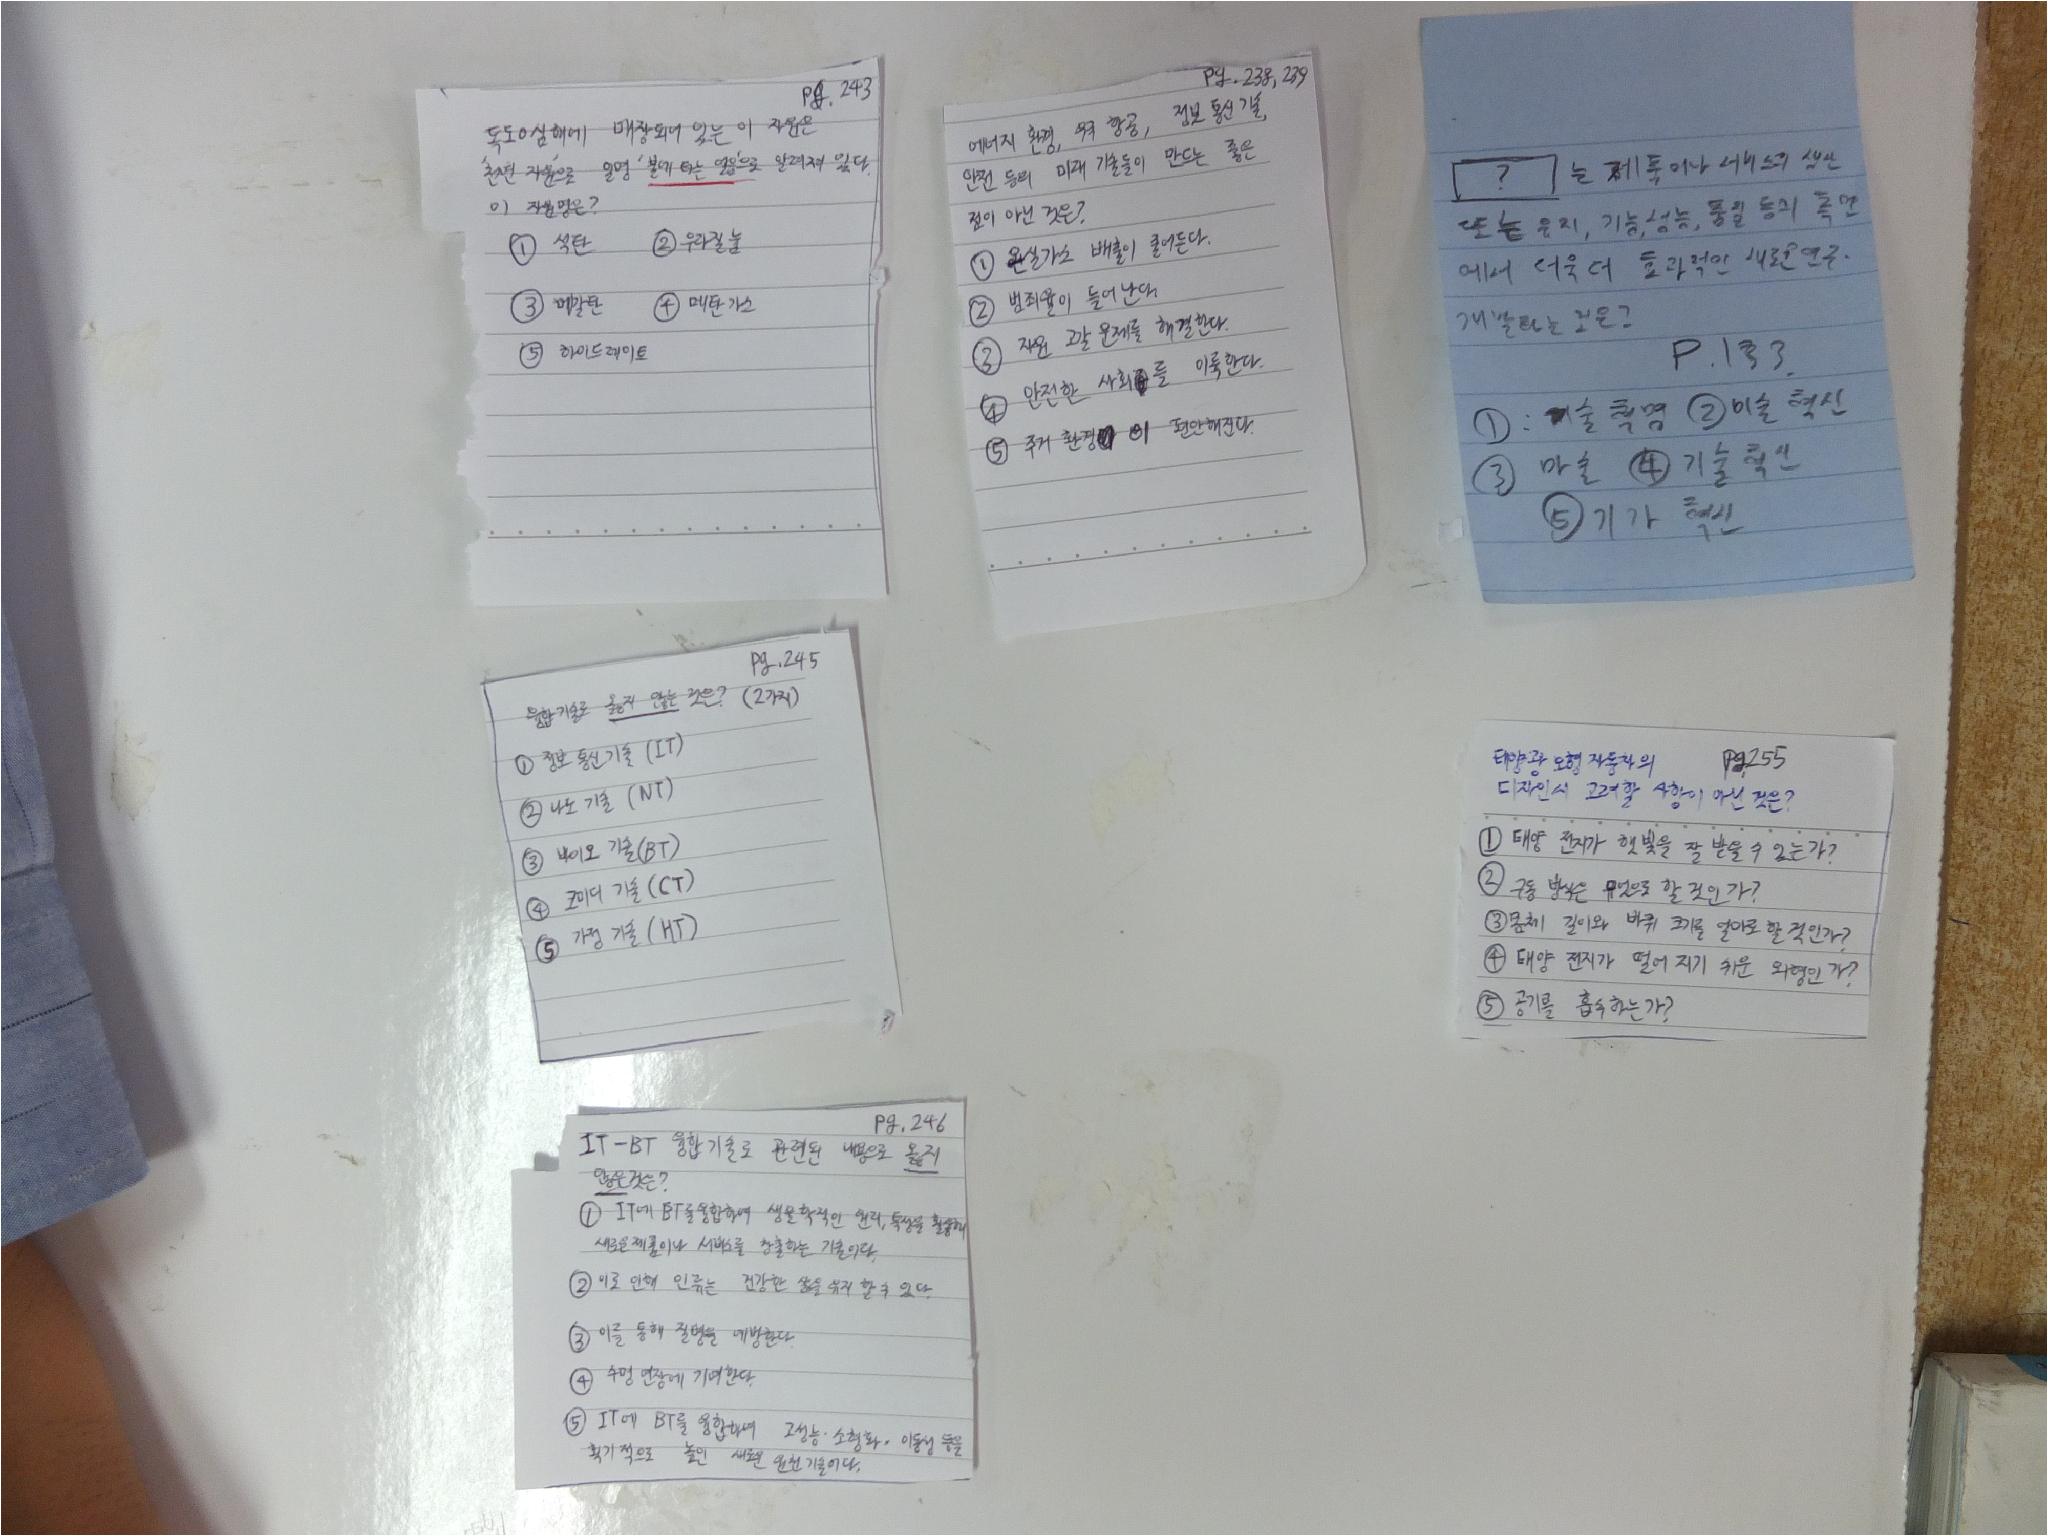 pg. 243
독도 심해에 매장되어 있는 이 자원은
'천연 자원'으로 일명 '불에 타는 얼음'으로 알려져 있다.
이 자원명은?
① 석탄 ② 우라질눔
③ 메갈탄 ④ 메탄가스
⑤ 하이드레이트
pg. 238, 239
에너지 환경, 우주 항공, 정보 통신 기술,
안전 등의 미래 기술들이 만드는 좋은
점이 아닌 것은?
① 온실가스 배출이 줄어든다.
② 범죄율이 늘어난다.
③ 자원 고갈 문제를 해결한다.
④ 안전한 사회를 이룩한다.
⑤ 주거 환경이 편안해진다.
? 는 제품이나 서비스의 생산
또는 유지, 기능, 성능, 품질 등의 측면
에서 더욱 더 효과적인 새로운 연구·
개발하는 것은?
P. 133.
①: 기술 혁명 ② 미술 혁신
③ 마술 ④ 기술 혁신
⑤ 기가 혁신
pg. 245
융합기술로 옳지 않는 것은? (2가지)
① 정보 통신 기술 (IT)
② 나노 기술 (NT)
③ 바이오 기술(BT)
④ 코미디 기술 (CT)
⑤ 가정 기술 (HT)
태양광 모형 자동차의 pg.255
디자인시 고려할 사항이 아닌 것은?
① 태양 전지가 햇빛을 잘 받을 수 있는가?
② 구동 방식은 무엇으로 할 것인가?
③ 몸체 길이와 바퀴 크기를 얼마로 할 것인가?
④ 태양 전지가 떨어지기 쉬운 외형인가?
⑤ 공기를 흡수하는가?
pg. 246
IT-BT 융합기술로 관련된 내용으로 옳지
않은 것은?
① IT에 BT를 융합하여 생물학적인 원리, 특성을 활용해
새로운 제품이나 서비스를 창출하는 기술이다.
② 이로 인해 인류는 건강한 삶을 유지 할 수 있다.
③ 이를 통해 질병을 예방한다.
④ 수명 연장에 기여한다.
⑤ IT에 BT를 융합하여 고성능·소형화·이동성 등을
획기적으로 높인 새로운 원천 기술이다.